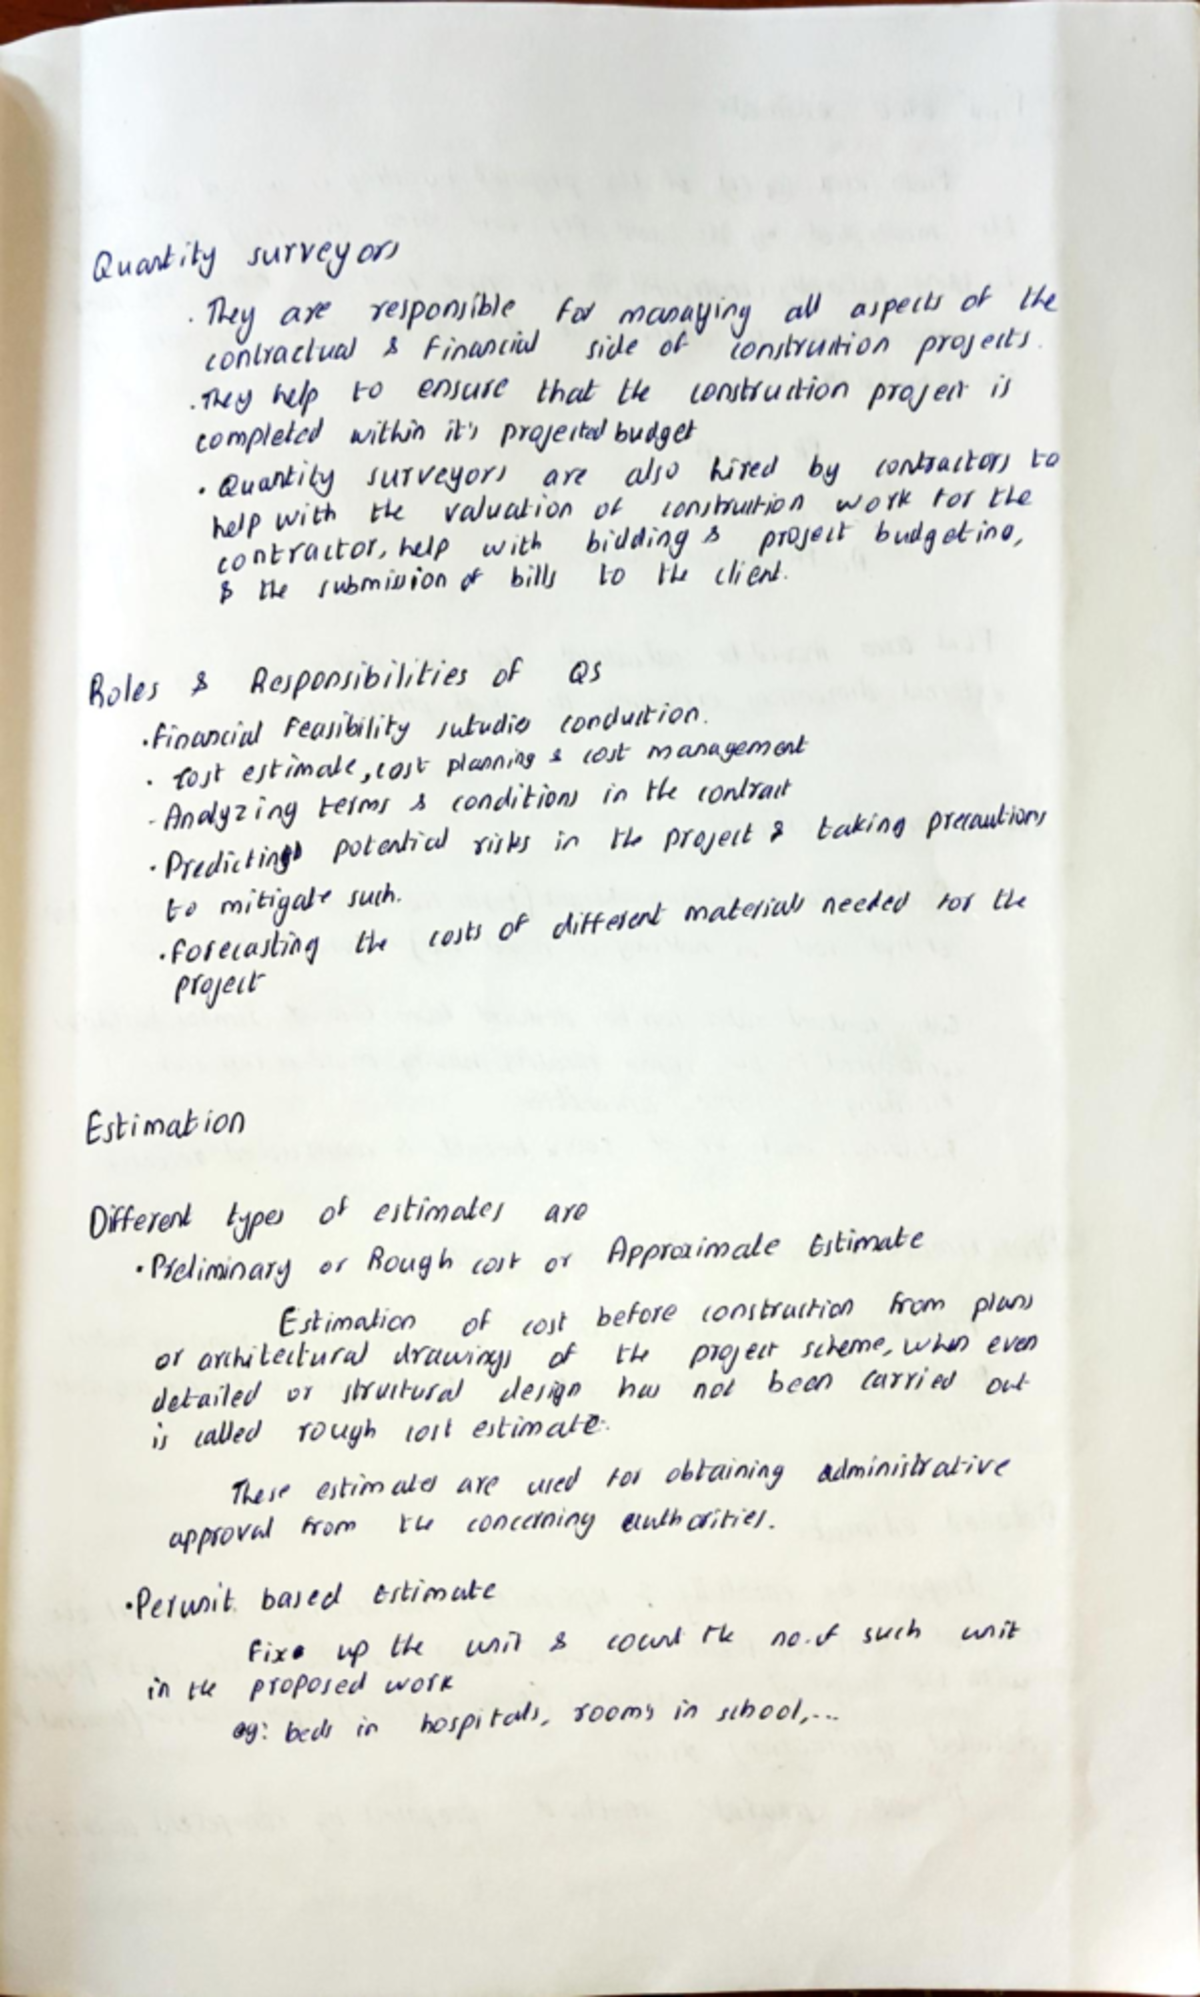 Quantity surveyors
. They are responsible for managing all aspects of the
contractual & Financial side of construction projects.
. They help to ensure that the construction project is
completed within it's projected budget
. Quantity surveyors are also hired by contractors to
help with the valuation of construction work for the
contractor, help with bidding & project budgeting,
& the submission of bills to the client.
Roles & Responsibilities of QS
. Financial Feasibility sutudies conduction.
. Cost estimate, cost planning & cost management
- Analyzing terms & conditions in the contract
. Predicting potential risks in the project & taking precautions
to mitigate such.
. Forecasting the costs of different materials needed for the
project
Estimation
Different types of estimates are
. Preliminary or Rough cost or Approximate Estimate
Estimation of cost before construction from plans
or architectural drawings of the project scheme, when even
detailed or structural design has not been carried out
is called rough cost estimate.
These estimates are used for obtaining administrative
approval from the concerning authorities.
. Perunit based Estimate
Fix up the unit & count the no. of such unit
in the proposed work
eg: beds in hospitals, rooms in school,...